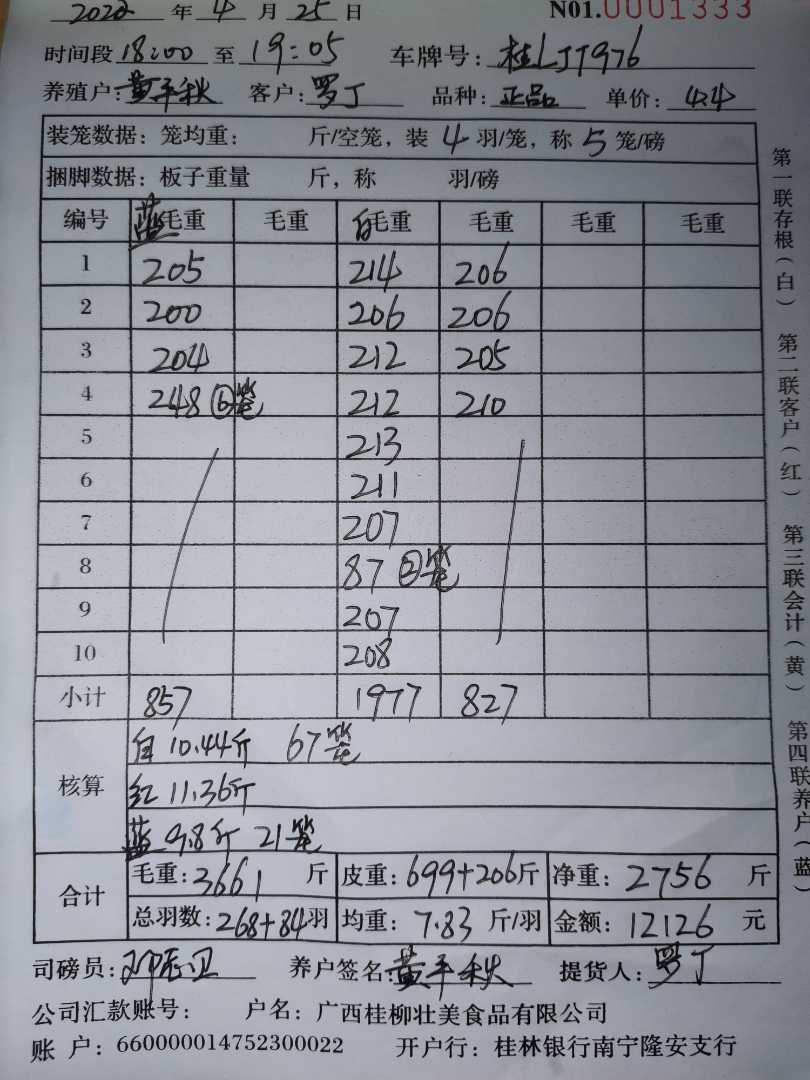 2022 年 4 月 25 日 N01.0001333
时间段 18:00 至 19:05 车牌号: 桂LJT976
养殖户: 黄平秋 客户: 罗丁 品种: 正品 单价: 4.4
装笼数据: 笼均重: 斤/空笼, 装 4 羽/笼, 称 5 笼/磅
捆脚数据: 板子重量 斤, 称 羽/磅
编号 蓝毛重 毛重 白毛重 毛重 毛重 毛重
1 205 214 206
2 200 206 206
3 204 212 205
4 248 ⑥笼 212 210
5 213
6 211
7 207
8 87 ②笼
9 207
10 208
小计 857 1977 827
核算
白 10.44斤 67笼
红 11.36斤
蓝 9.8斤 21笼
合计
毛重: 3661 斤 皮重: 699+206斤 净重: 2756 斤
总羽数: 268+84羽 均重: 7.83 斤/羽 金额: 12126 元
司磅员: 养户签名: 黄平秋 提货人: 罗丁
公司汇款账号: 户名: 广西桂柳壮美食品有限公司
账 户: 660000014752300022 开户行: 桂林银行南宁隆安支行
第一联存根(白) 第二联客户(红) 第三联会计(黄) 第四联养户(蓝)